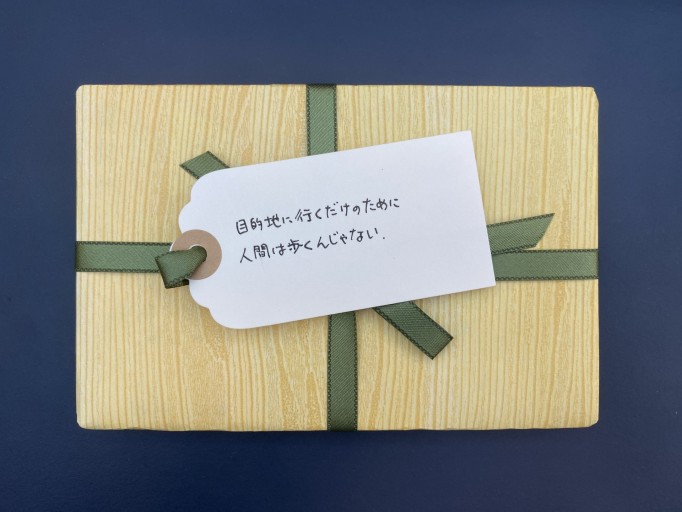 目的地に行くだけのために
人間は歩くんじゃない.